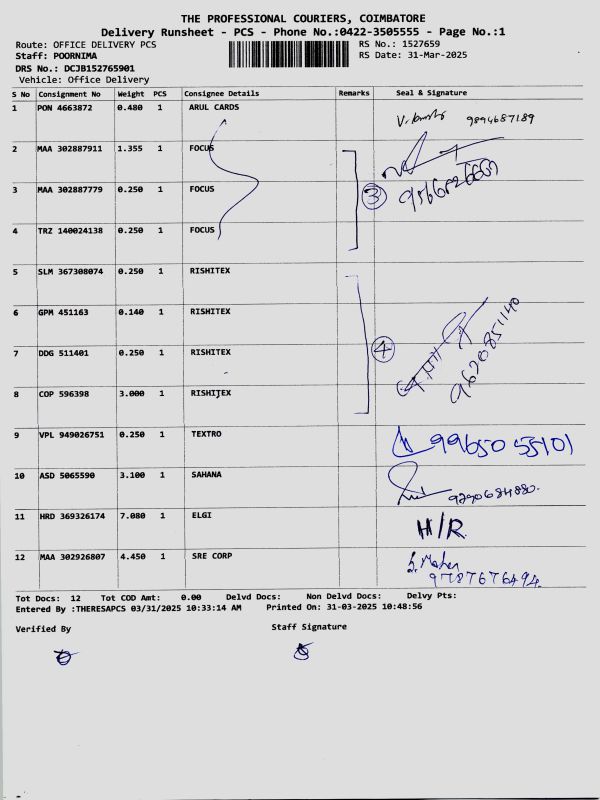 THE PROFESSIONAL COURIERS, COIMBATORE
Delivery Runsheet - PCS - Phone No.:0422-3505555 - Page No.:1
Route: OFFICE DELIVERY PCS RS No.: 1527659
Staff: POORNIMA RS Date: 31-Mar-2025
DRS No.: DCJB152765901
Vehicle: Office Delivery
S No Consignment No Weight PCS Consignee Details Remarks Seal & Signature
1 PON 4663872 0.480 1 ARUL CARDS 9894687189
2 MAA 302887911 1.355 1 FOCUS
3 MAA 302887779 0.250 1 FOCUS 3
4 TRZ 140024138 0.250 1 FOCUS
5 SLM 367308074 0.250 1 RISHITEX
6 GPM 451163 0.140 1 RISHITEX
7 DDG 511401 0.250 1 RISHITEX 4 9620851140
8 COP 596398 3.000 1 RISHITEX
9 VPL 949026751 0.250 1 TEXTRO 99650 55101
10 ASD 5065590 3.100 1 SAHANA
11 HRD 369326174 7.080 1 ELGI H/R
12 MAA 302926807 4.450 1 SRE CORP 9787676494
Tot Docs: 12 Tot COD Amt: 0.00 Delvd Docs: Non Delvd Docs: Delvy Pts:
Entered By :THERESAPCS 03/31/2025 10:33:14 AM Printed On: 31-03-2025 10:48:56
Verified By Staff Signature